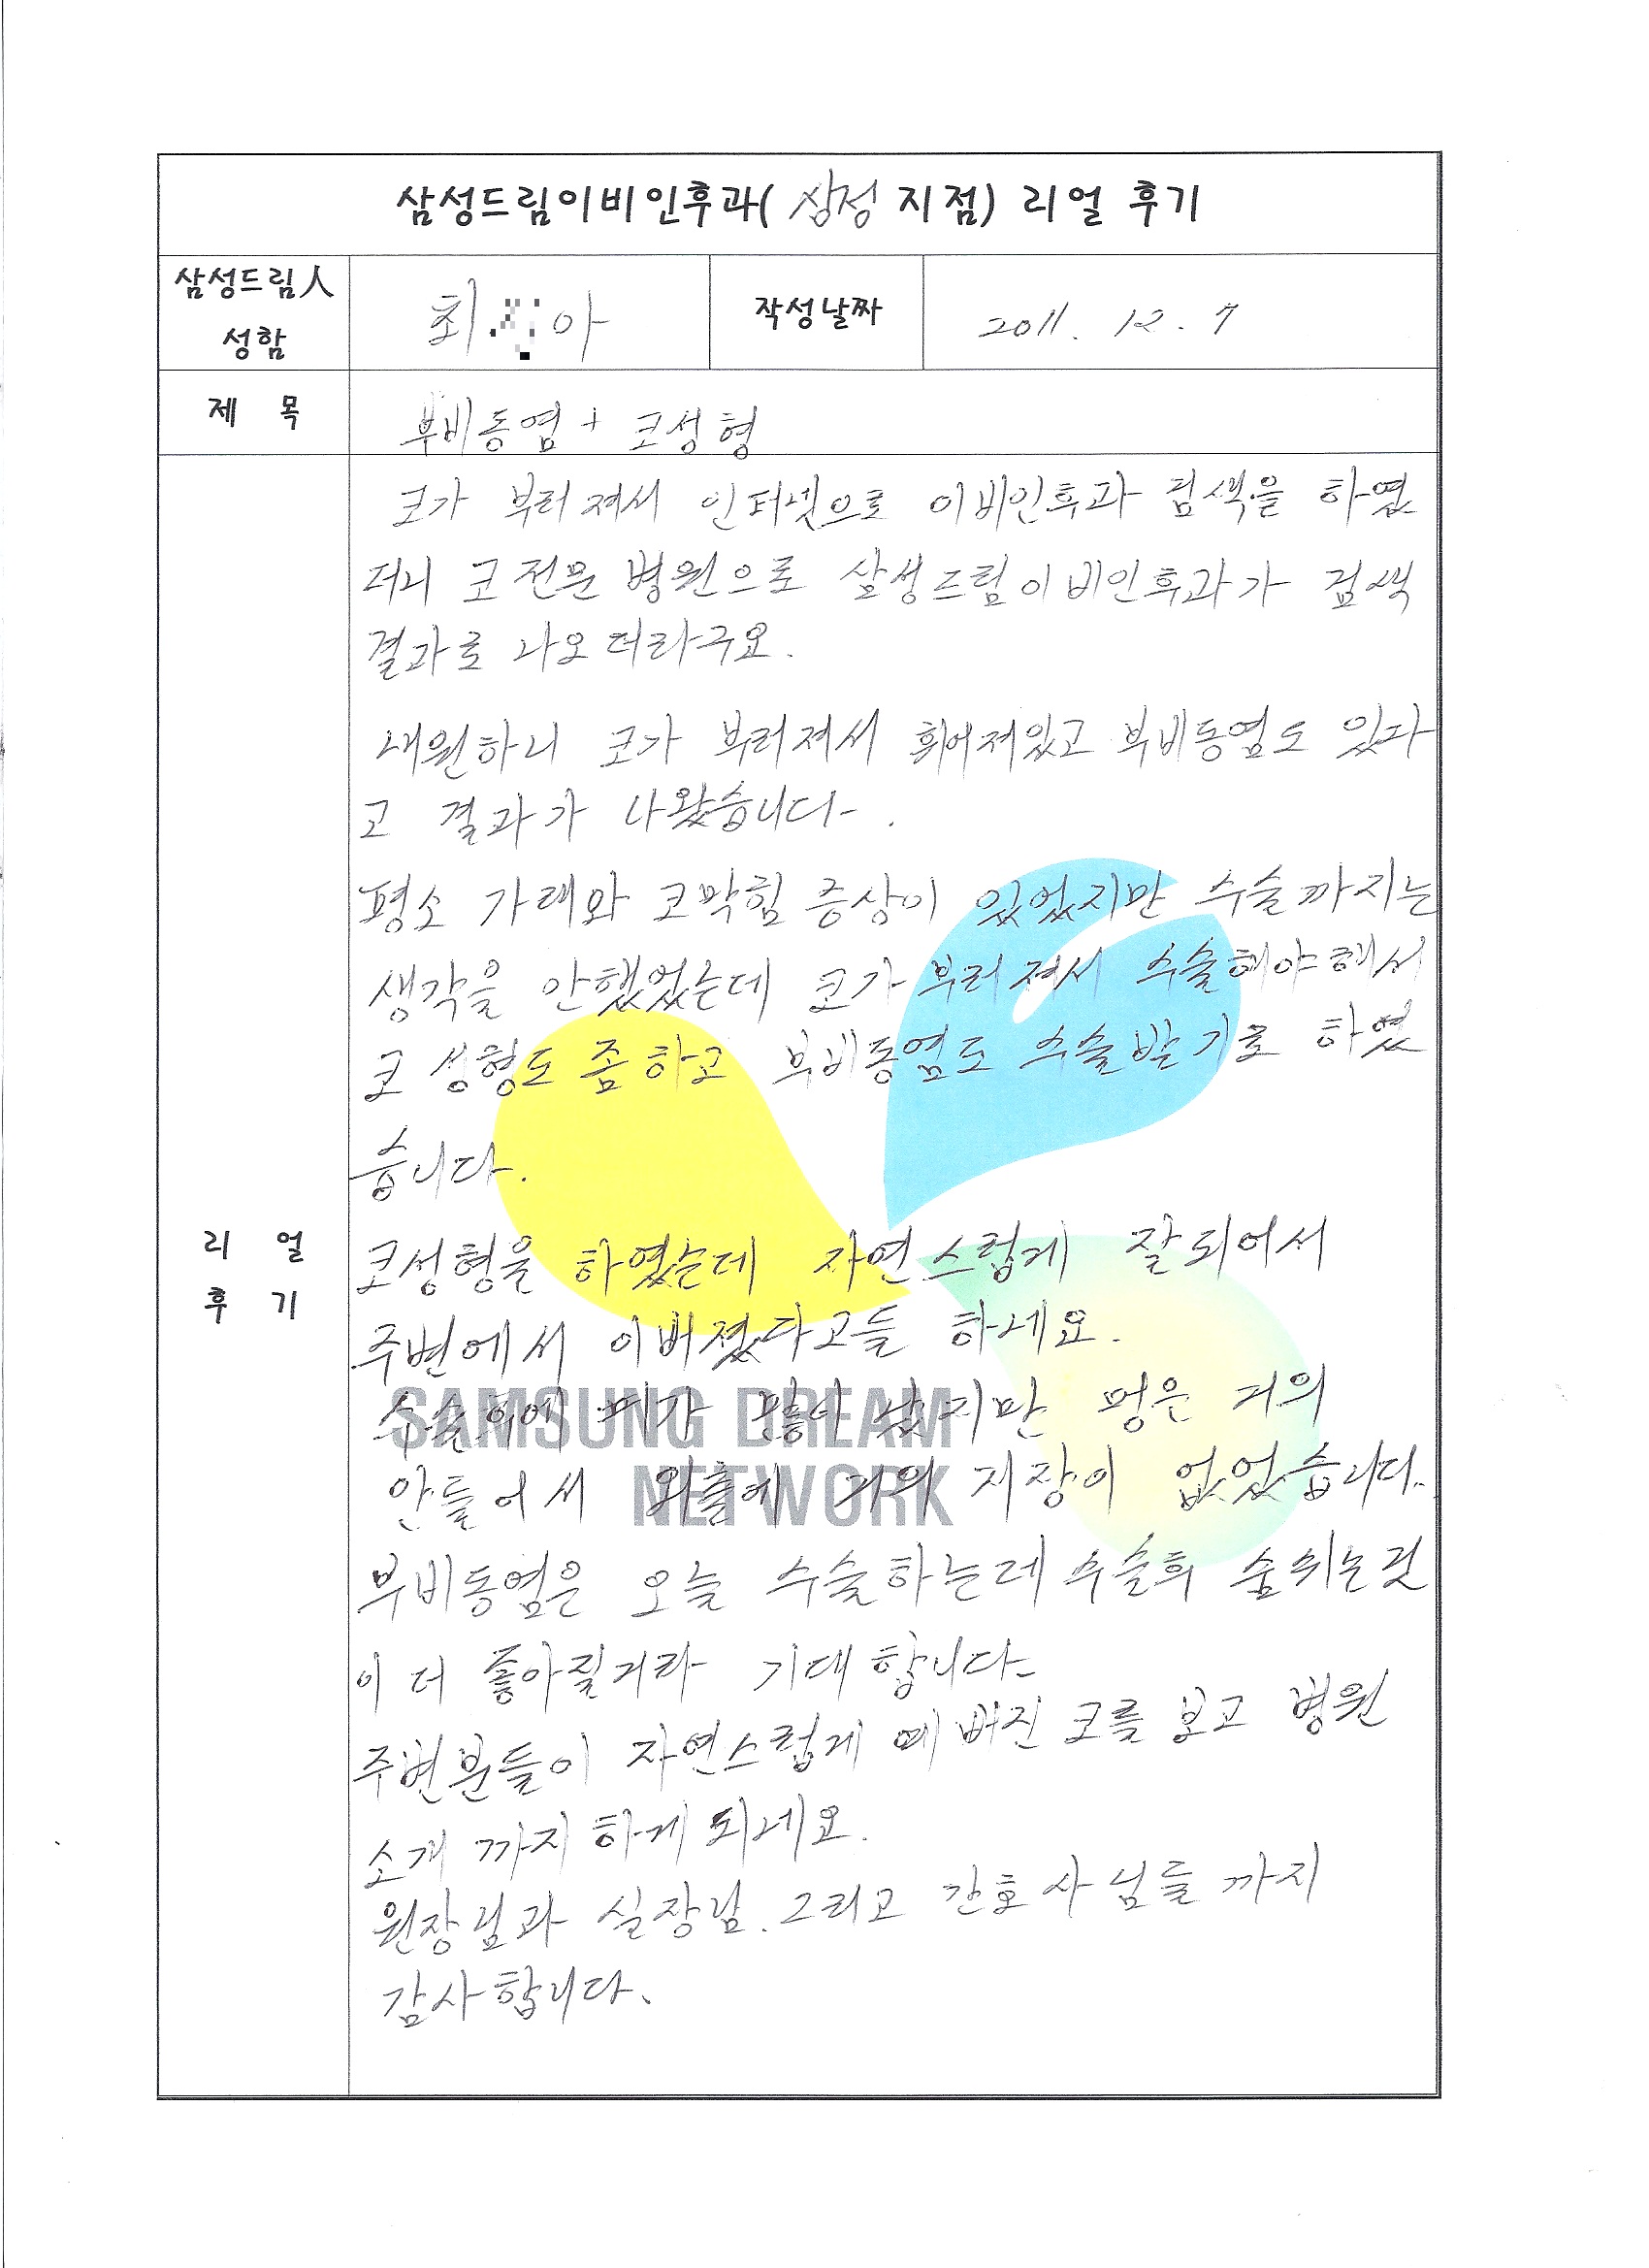 삼성드림이비인후과( 삼성 지점) 리얼 후기
삼성드림人 성함
최 아
작성날짜
2011. 12. 7
제 목
부비동염 + 코성형
리 얼 후 기
코가 부러져서 인터넷으로 이비인후과 검색을 하였
더니 코 전문 병원으로 삼성드림이비인후과가 검색
결과로 나오더라구요.
내원하니 코가 부러져서 휘어져있고 부비동염도 있다
고 결과가 나왔습니다.
평소 가래와 코막힘 증상이 있었지만 수술까지는
생각을 안했었는데 코가 부러져서 수술해야해서
코 성형도 좀 하고 부비동염도 수술받기로 하였
습니다.
코성형을 하였는데 자연스럽게 잘되어서
주변에서 이뻐졌다고들 하세요.
수술후에 피가 많이 났지만 멍은 거의
안들어서 외출에 거의 지장이 없었습니다..
부비동염은 오늘 수술하는데 수술후 숨쉬는것
이 더 좋아질거라 기대합니다.
주변분들이 자연스럽게 예뻐진 코를 보고 병원
소개 까지 하게 되네요.
원장님과 실장님. 그리고 간호사님들 까지
감사합니다.
SAMSUNG DREAM
NETWORK